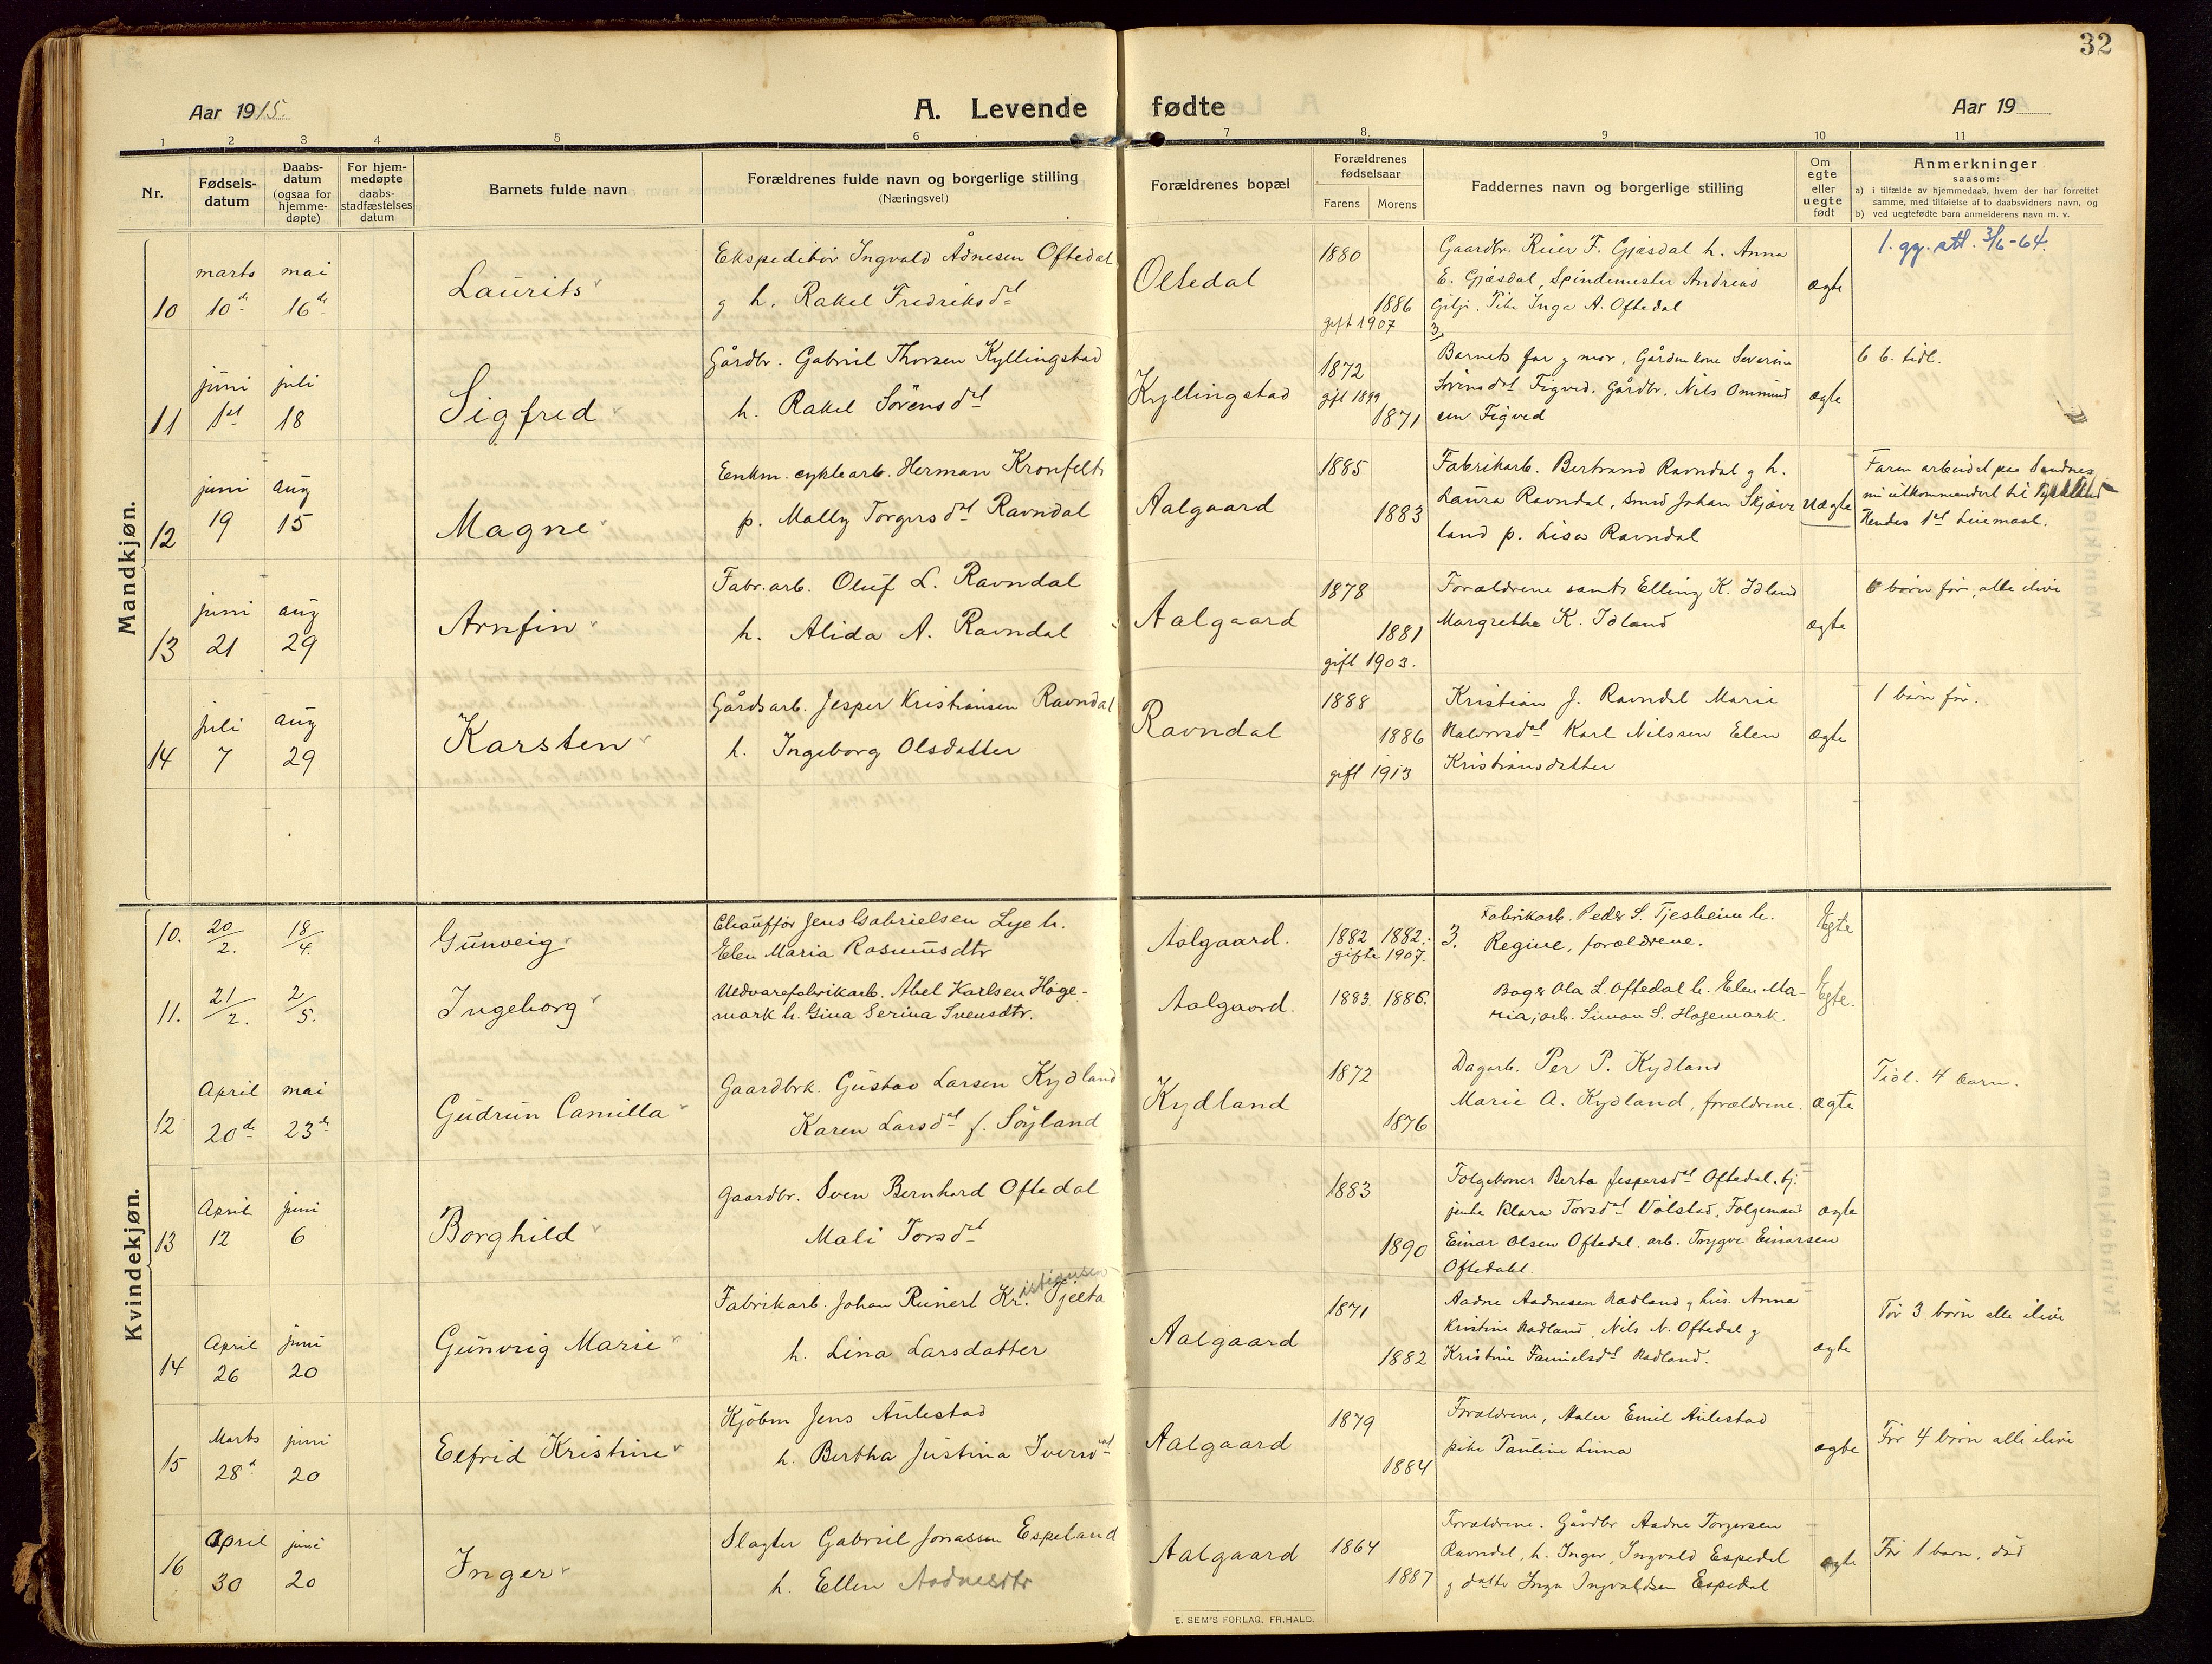 32
Aar 1915. A. Levende fødte Aar 19
1 2 3 4 5 6 7 8 9 10 11
Nr.
Fødsels-
datum
Daabs-
datum
(ogsaa for
hjemme-
døpte)
For hjem-
medøpte
daabs-
stadfæstelses
datum
Barnets fulde navn
Forældrenes fulde navn og borgerlige stilling
(Næringsvei)
Forældrenes bopæl
Forældrenes
fødselsaar
Farens Morens
Faddernes navn og borgerlige stilling
Om
egte
eller
uegte
født
Anmerkninger
saasom:
a) i tilfælde av hjemmedaab, hvem der har forrettet
samme, med tilføielse af to daabsvidners navn, og
b) ved uegtefødte barn anmelderens navn m. v.
Mandkjøn.
10
marts
10de
mai
16de
Laurits
Ekspeditør Ingvald Ådnesen Oftedal
g h. Rakel Fredriksdtr
Oltedal
1880
1886
gift 1907
Gaardbr. Reier F. Gjæsdal h. Anna
E. Gjæsdal, Spindemester Andreas
Gilje. Pike Inga A. Oftedal
3.
ægte
1. gg. att. 3/6-64.
11
juni
1st
juli
18
Sigfred
Gårdbr. Gabriel Thorsen Kyllingstad
h. Rakel Sörensdtr
Kyllingstad
1872
gift 1899
1871
Barnets far g mor, Gårdm kone Severine
Sörensdtr Figved. Gårdbr. Nils Ommund
sen Figved
ægte
6 b. tidl.
12
juni
19
aug
15
Magne
Enkm. cyklearb. Herman Kronfelt
p. Mally Torgersdtr Ravndal
Aalgaard
1885
1883
Fabrikarb. Bertrand Ravndal g h.
Laura Ravndal, smed Johan Skjæve
land p. Lisa Ravndal
uægte
Faren arbeidet paa Sandnes
nu utkommandert til
Hendes 1st Leiemaal.
13
juni
21
aug
29
Arnfin
Fabr. arb. Oluf L. Ravndal
h. Alida A. Ravndal
Aalgaard
1878
1881
gift 1903.
Forældrene samt Elling K. Idland
Margrethe K. Idland
ægte
6 børn før, alle ilive
14
juli
7
aug
29
Karsten
Gårdsarb. Jesper Kristiansen Ravndal
h. Ingeborg Olsdatter
Ravndal
1888
1886
gift 1913
Kristian J. Ravndal Marie
Halvorsdtr Karl Nilssen Elen
Kristiansdatter
ægte
1 barn før.
Kvindekjøn.
10.
20/2.
18/4.
Gunveig
Chauffør Jens Gabrielsen Lye h.
Elen Maria Rasmusdtr
Aalgaard.
1882 1882.
gifte 1907.
3.
Fabrikarb. Peder S. Tjesheim h.
Regine, forældrene.
Egte
11.
21/2.
2/5.
Ingeborg
Uldvarefabrikarb. Abel Karlsen Høge-
mark h. Gina Serina Svensdtr.
Aalgaard.
1883. 1886.
Bager Ola L. Oftedal h. Elen Ma-
ria; arb. Simon S. Hogemark
Egte.
12
April
20de
mai
23de
Gudrun Camilla
Gaardbrk. Gustav Larsen Kydland
Karen Larsdtr f. Söyland
Kydland
1872
1876
Dagarb. Per P. Kydland
Marie A. Kydland, forældrene.
ægte
Tidl. 4 barn.
13
April
12
juni
6
Borghild
Gaardbr. Sven Bernhard Oftedal
Mali Torsdtr
1883
1890
Folgekoner Berta Jespersdtr Oftedal. tj.
jente Klara Torsdtr Völstad, Folgemand
Einar Olsen Oftedal. arb. Trygve Einarsen
Oftedahl.
ægte
14
April
26
juni
20
Gunvig Marie
Fabrikarb. Johan Reinert Kr.istiansen Tjelta
h. Lina Larsdatter
Aalgaard
1871
1882
Aadne Aadnesen Madland g hus. Anna
Kristine Madland, Nils N. Oftedal g
Kristine Danielsdtr Madland.
ægte
Før 3 børn alle ilive
15
Marts
28d.
juni
20
Elfrid Kristine
Kjöbm Jens Aulestad
h. Bertha Justina Iversdtr
Aalgaard
1879
1884
Forældrene, Maler Emil Aulestad
pike Pauline Lima
ægte
Før 4 børn alle ilive
16
April
30
juni
20
Inger
Slagter Gabriel Jonassen Espeland
h. Ellen Aadnesdtr
Aalgaard
1864
1887
Forældrene. Gårdbr Aadne Torgersen
Ravndal, h. Inger, Ingvald Espedal
g datte Inga Ingvaldsen Espedal
ægte
Før 1 barn, död
E. SEM'S FORLAG, FR.HALD.